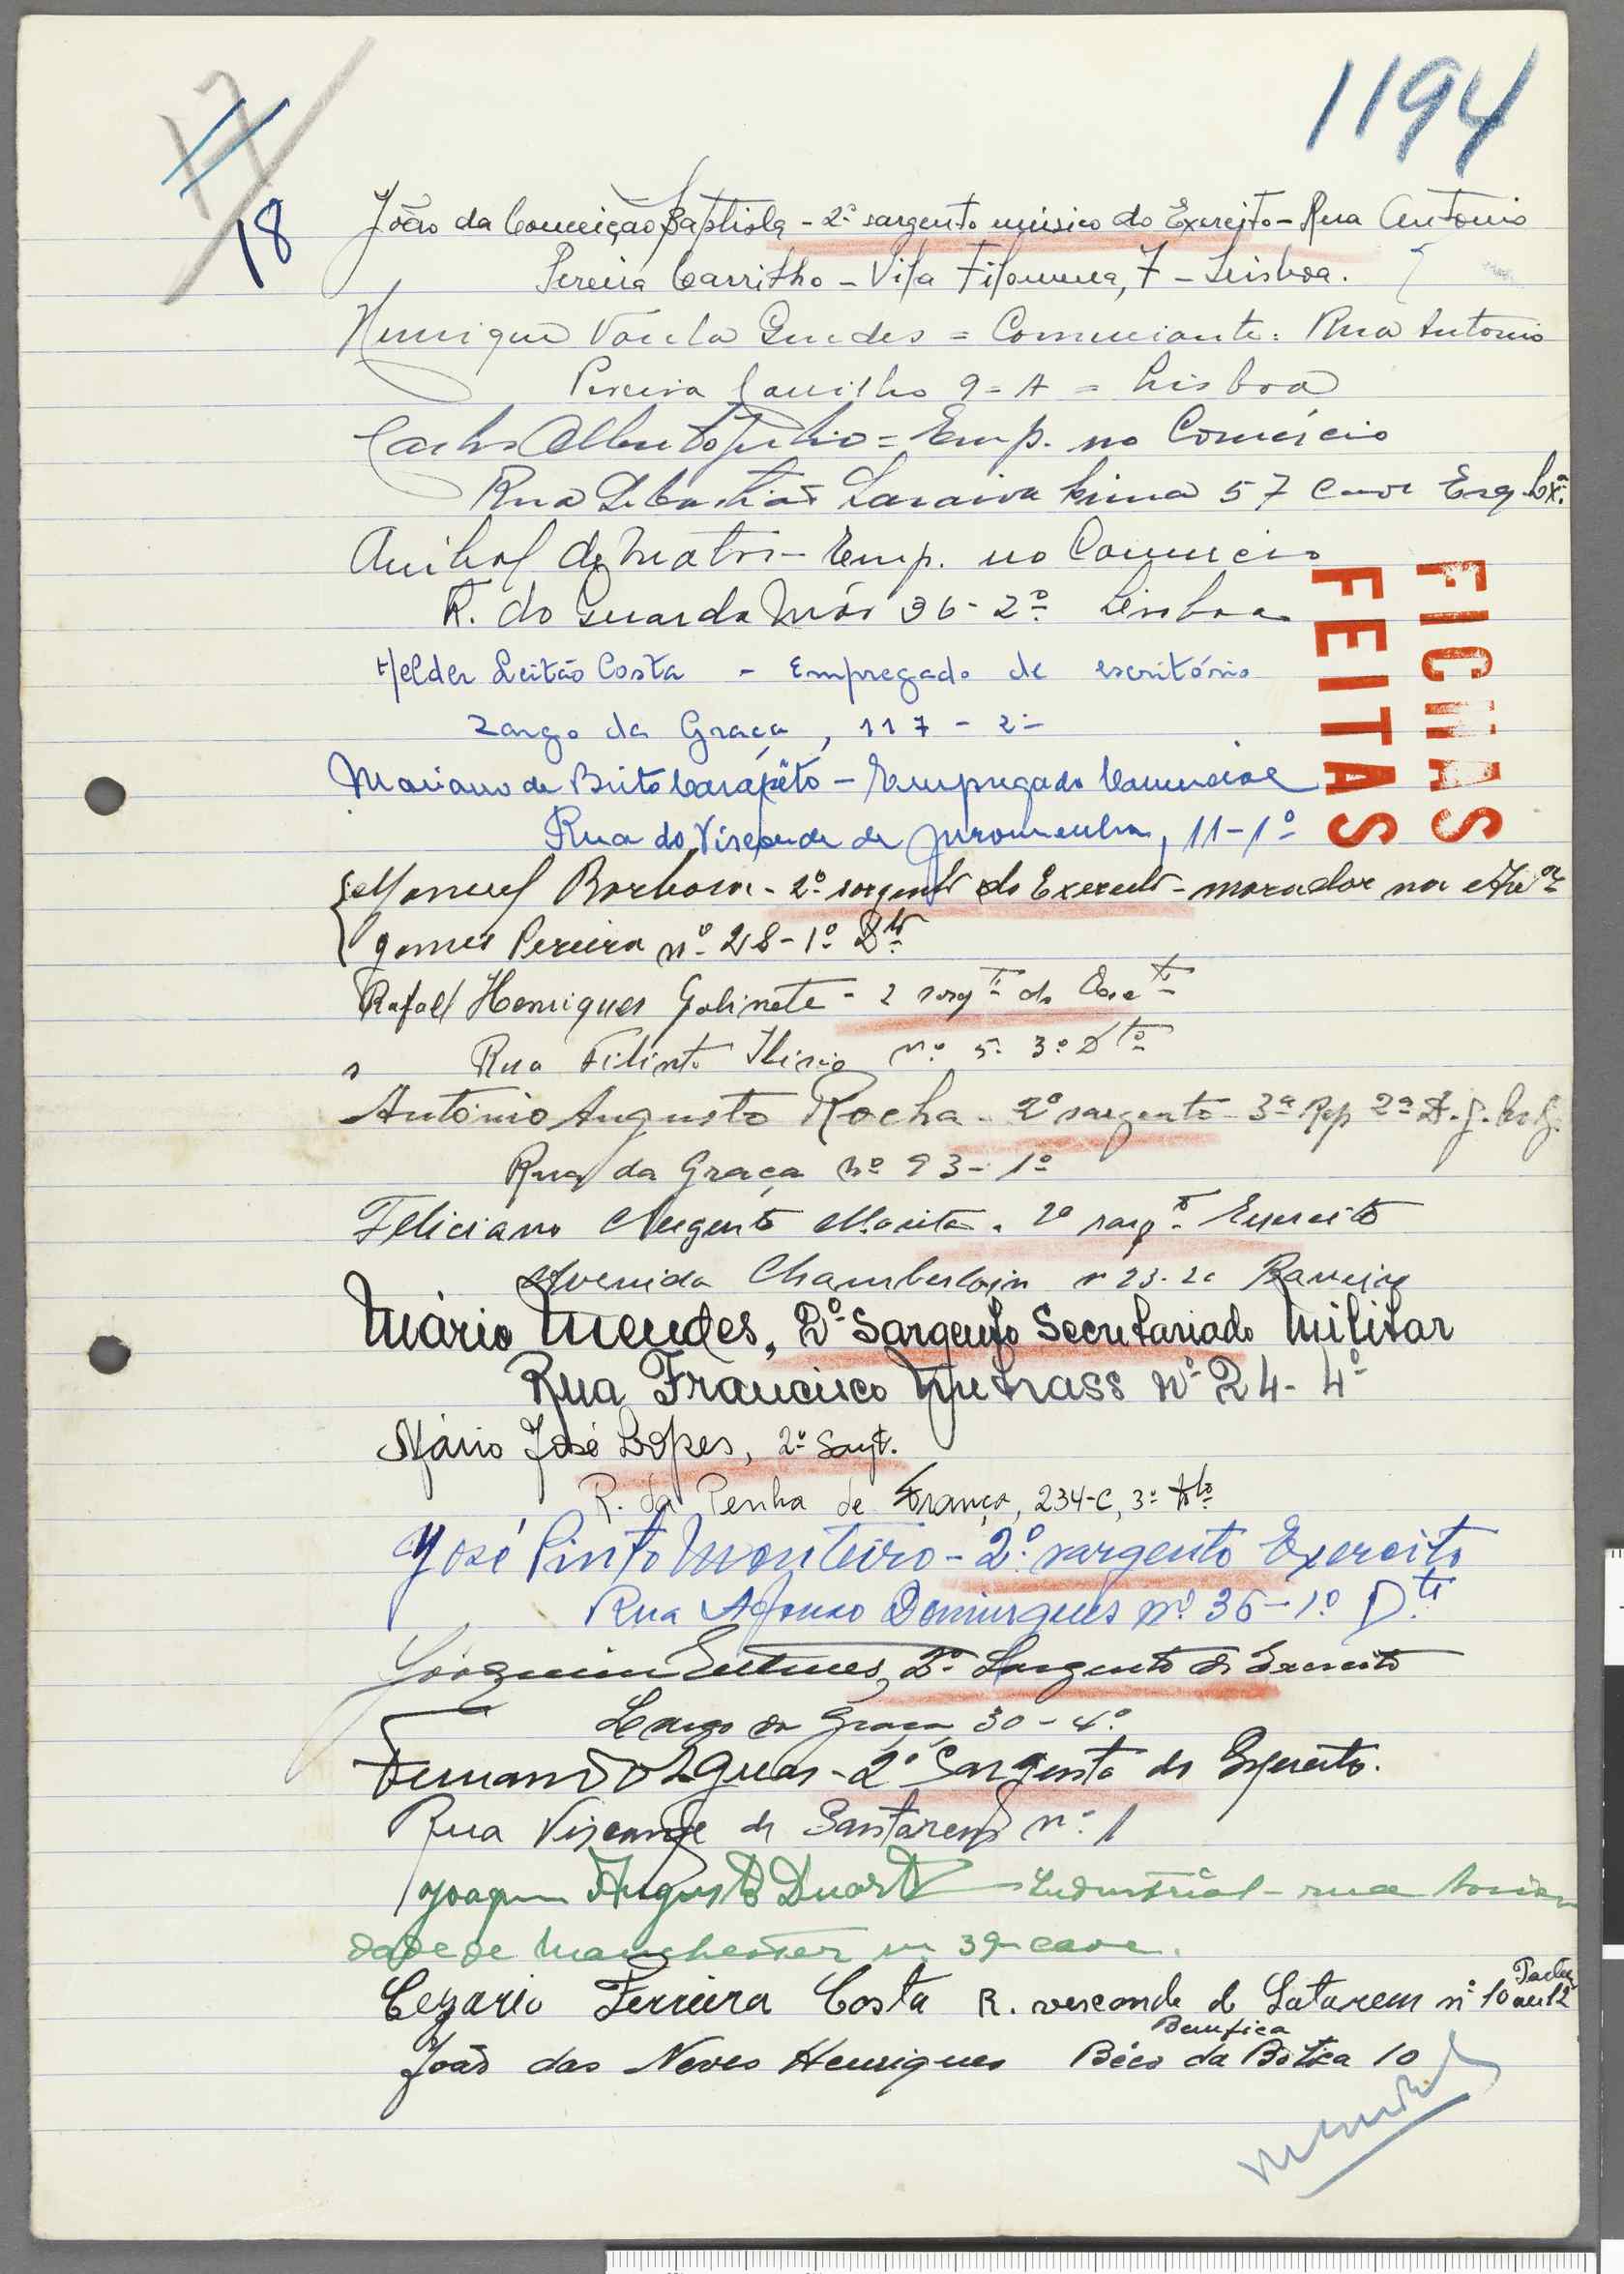 1194
17
18
João da Conceição Baptista - 2º sargento músico do Exercito - Rua Antonio
Pereira Carrilho - Vila Filomena, 7 - Lisboa.
Henrique Varela Guedes = Comerciante: Rua Antonio
Pereira Carrilho 9 = A = Lisboa
Carlos Alberto Julio = Emp. no Comércio
Rua Sebastião Saraiva Lima 57 cave Esq. Lxª.
Anibal de Matos - Emp. no Comercio
R. do Guarda Mór 36 - 2º Lisboa
Helder Leitão Costa - Empregado de escritório
Largo da Graça, 117 - 2º
Mariano de Brito Carapêto - Empregado Comercial
Rua do Visconde de Juromenha, 11-1º
Manuel Barbosa - 2º sargento do Exercito - morador na
gomes Pereira nº 28-1º Dtº
Rafael Henriques Gabinete - 2 sargtº do
Rua Filinto Elisio nº 5. 3º Dtº
António Augusto Rocha - 2º sargento - 3ª Rep 2ª D. g.
Rua da Graça nº 93-1º
Feliciano Augusto - 2º sargtº Exercito
Avenida Chamberlain nº 23-2º
Mário Mendes, 2º Sargento Secretariado Militar
Rua Francisco Metrass nº 24-4º
Mário José Lopes, 2º Sargt.
R. da Penha de França, 234-C, 3º Dtº
José Pinto Monteiro - 2º sargento Exercito
Rua Afonso Domingues nº 36-1º Dtº
Joaquim Antunes, 2º Sargento do Exercito
Largo da Graça, 30-4º
Fernando Aguas - 2º Sargento do Exército.
Rua Visconde de Santarem nº 1
Joaquim Augusto Duarte - Industrial - rua
dade de Manchester nº 39-cave.
Cezario Ferreira Costa R. visconde de Satarem nº 10
Bemfica
João das Neves Henriques Béco da Botica 10
FICHAS
FEITAS